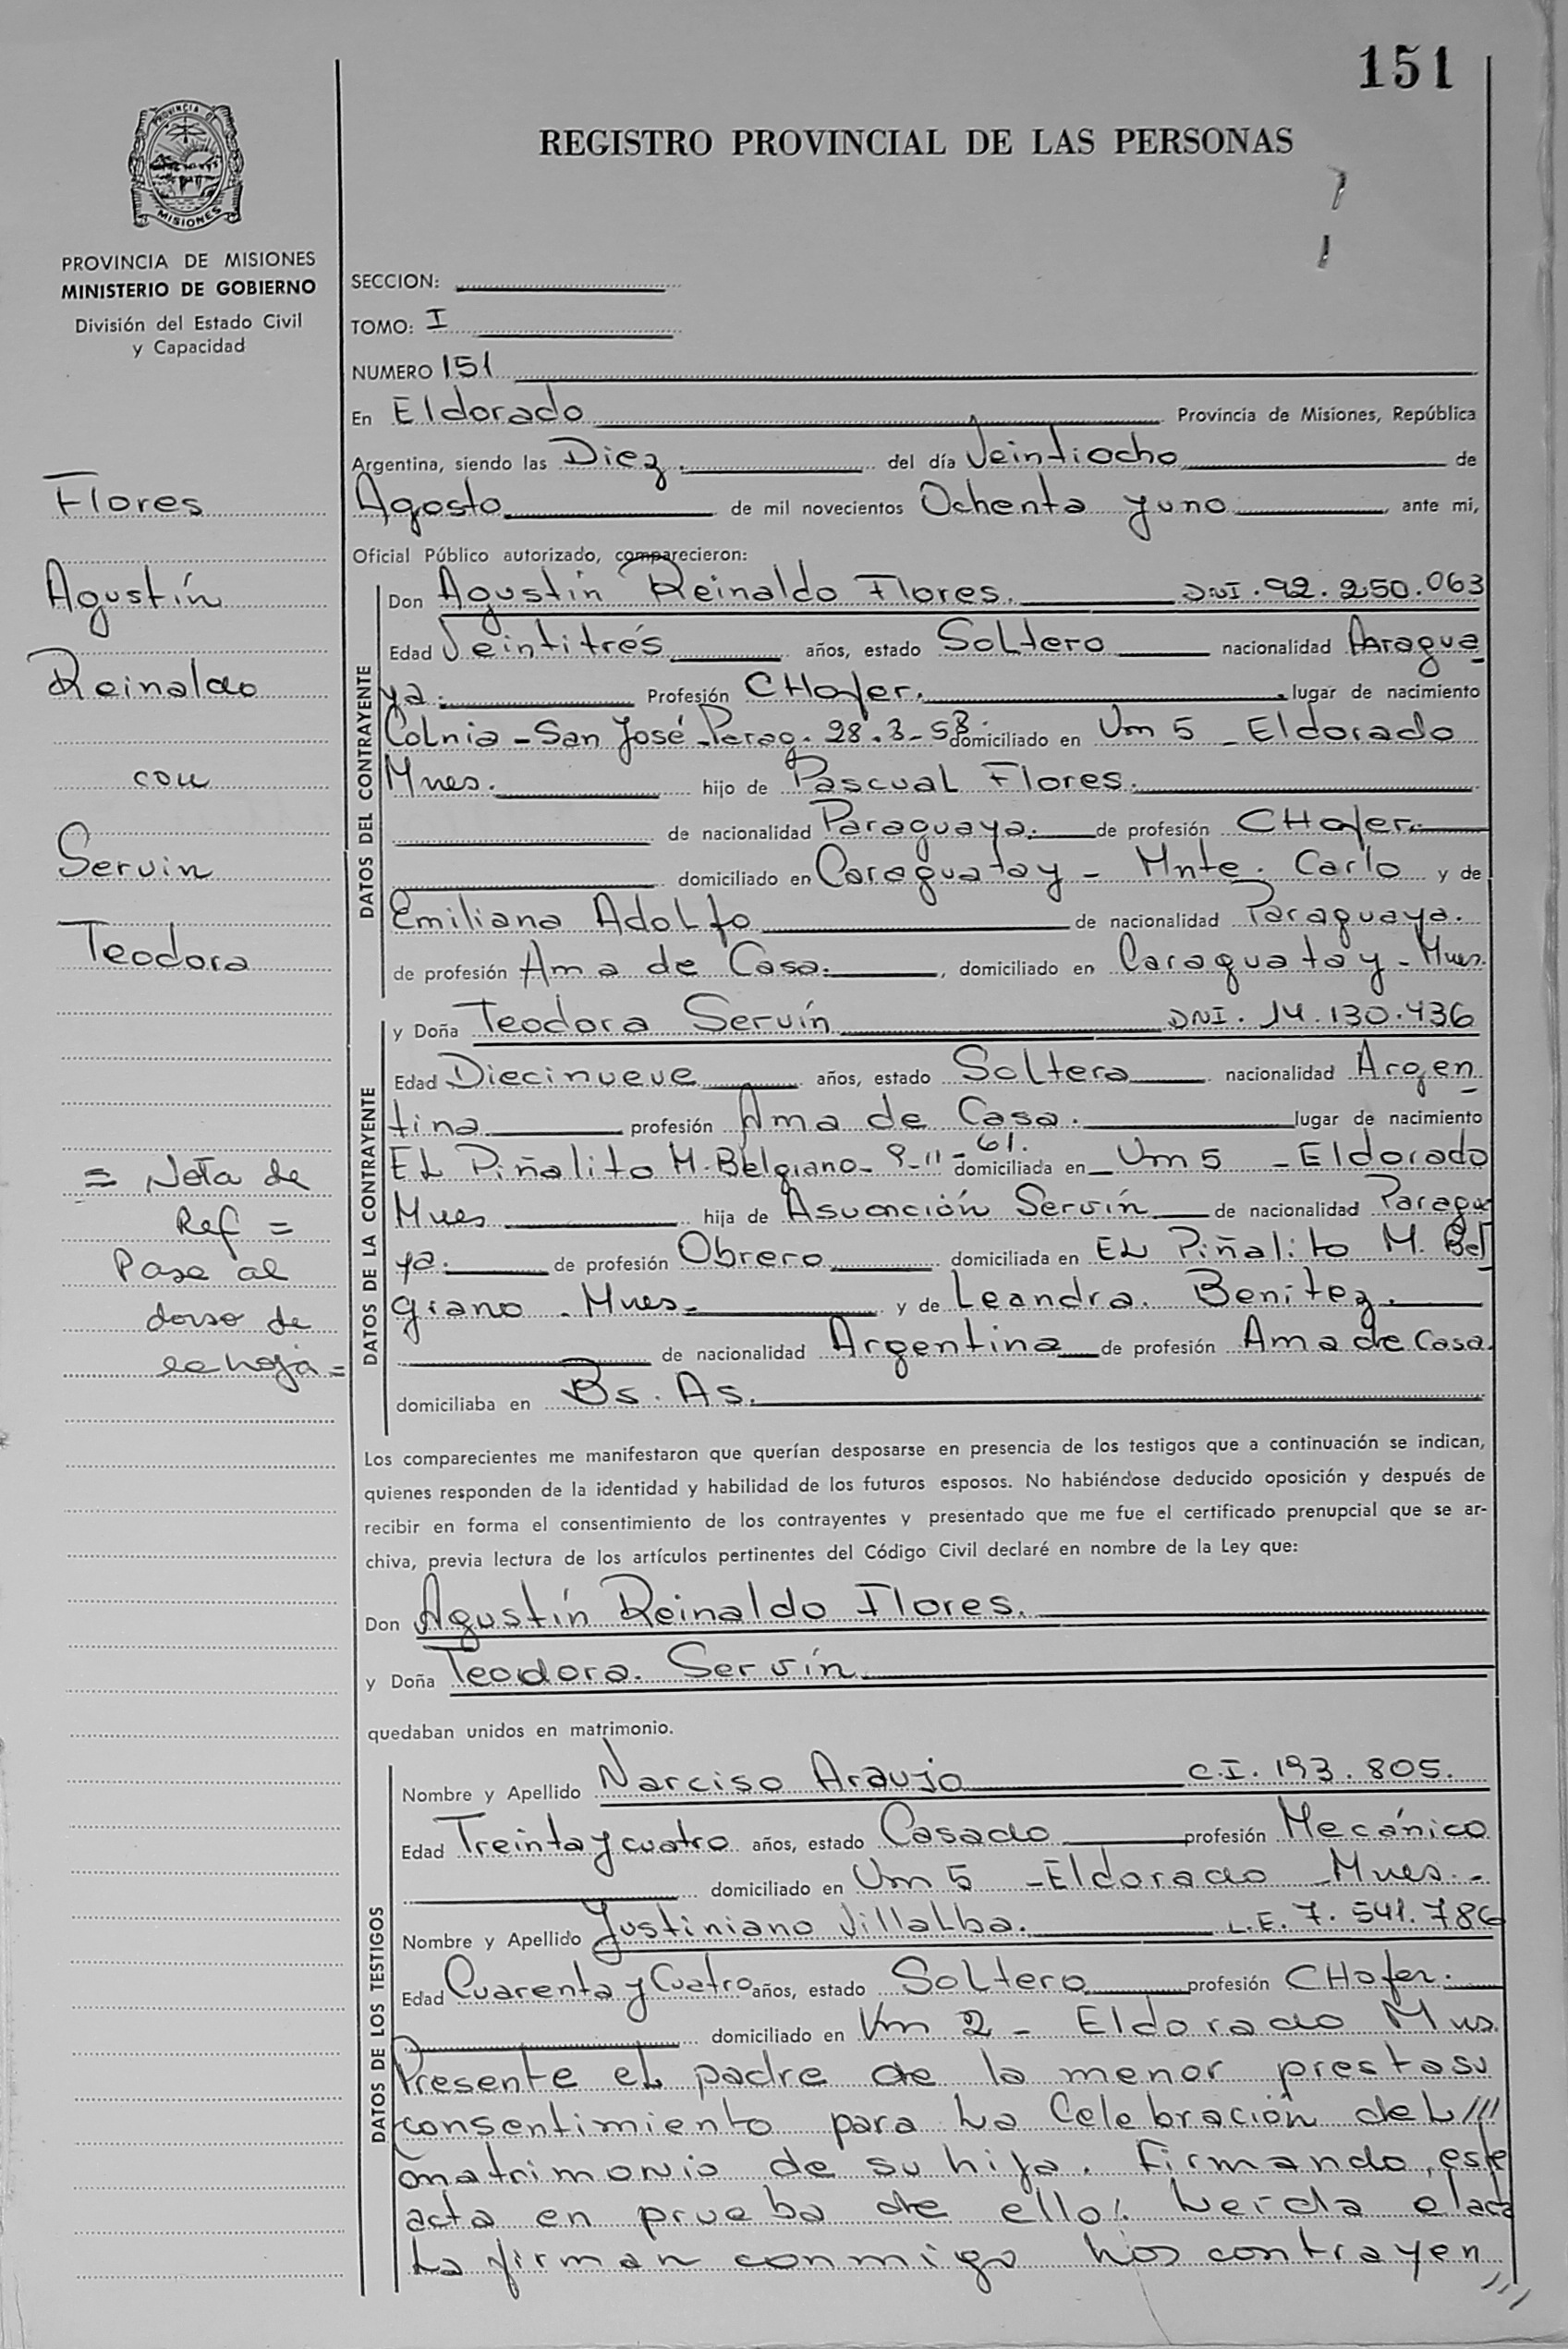 151
REGISTRO PROVINCIAL DE LAS PERSONAS
PROVINCIA DE
MISIONES
PROVINCIA DE MISIONES
MINISTERIO DE GOBIERNO
División del Estado Civil
y Capacidad
Flores
Agustín
Reinaldo
con
Servin
Teodora
= Nota de
Ref =
Pase al
dorso de
la hoja =
SECCION:
TOMO: I
NUMERO 151
En Eldorado Provincia de Misiones, República
Argentina, siendo las Diez. del día Veintiocho de
Agosto de mil novecientos Ochenta y uno, ante mi,
Oficial Público autorizado, comparecieron:
DATOS DEL CONTRAYENTE
Don Agustín Reinaldo Flores. DNI. 92.250.063
Edad Veintitrés años, estado Soltero nacionalidad Parague
ya. Profesión CHofer. lugar de nacimiento
Colnia - San José - Parag. 28.3-58. domiciliado en Km 5 - Eldorado
Mnes. hijo de Pascual Flores.
de nacionalidad Paraguaya. de profesión CHofer.
domiciliado en Caraguatay - Mnte. Carlo y de
Emiliana Adolfo de nacionalidad Paraguaya.
de profesión Ama de Casa. , domiciliado en Caraguatay - Mnes.
DATOS DE LA CONTRAYENTE
y Doña Teodora Servín DNI. 14.130.436
Edad Diecinueve años, estado Soltera nacionalidad Argen
tina profesión Ama de Casa. lugar de nacimiento
EL Piñalito M. Belgrano - 9-11-61. domiciliada en Km 5 - Eldorado
Mnes hija de Asunción Servín de nacionalidad Paragua
ya. de profesión Obrero domiciliada en EL Piñalito M. Bel
grano - Mnes - y de Leandra. Benitez.
de nacionalidad Argentina de profesión Ama de Casa.
domiciliaba en Bs. As.
Los comparecientes me manifestaron que querían desposarse en presencia de los testigos que a continuación se indican,
quienes responden de la identidad y habilidad de los futuros esposos. No habiéndose deducido oposición y después de
recibir en forma el consentimiento de los contrayentes y presentado que me fue el certificado prenupcial que se ar-
chiva, previa lectura de los artículos pertinentes del Código Civil declaré en nombre de la Ley que:
Don Agustín Reinaldo Flores.
y Doña Teodora. Servín
quedaban unidos en matrimonio.
DATOS DE LOS TESTIGOS
Nombre y Apellido Narciso Araujo C.I. 193.805.
Edad Treinta y cuatro años, estado Casado profesión Mecánico
domiciliado en Km 5 - Eldorado - Mnes. -
Nombre y Apellido Justiniano Villalba. L.E. 7.541.786
Edad Cuarenta y Cuatro años, estado Soltero profesión CHofer.
domiciliado en Km 2 - Eldorado Mns.
Presente el padre de la menor presta su
consentimiento para la Celebración del ///
matrimonio de su hija. firmando, este
acta en prueba de ello. Leída el acta
la firman conmigo los contrayen
///